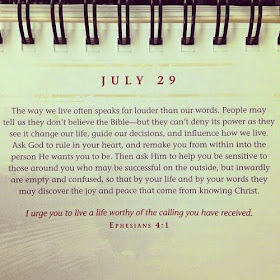 JULY 29
The way we live often speaks far louder than our words. People may
tell us they don't believe the Bible—but they can't deny its power as they
see it change our life, guide our decisions, and influence how we live.
Ask God to rule in your heart, and remake you from within into the
person He wants you to be. Then ask Him to help you be sensitive to
those around you who may be successful on the outside, but inwardly
are empty and confused, so that by your life and by your words they
may discover the joy and peace that come from knowing Christ.
I urge you to live a life worthy of the calling you have received.
EPHESIANS 4:1